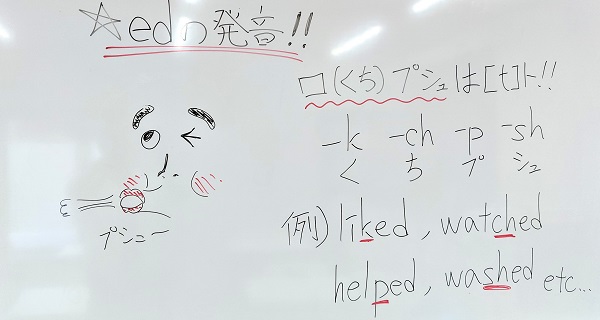 ☆edの発音!!
口(くち)プシュは[t]ト!!
-k -ch -p -sh
く ち プ シュ
プシュー
例) liked, watched
helped, washed etc...